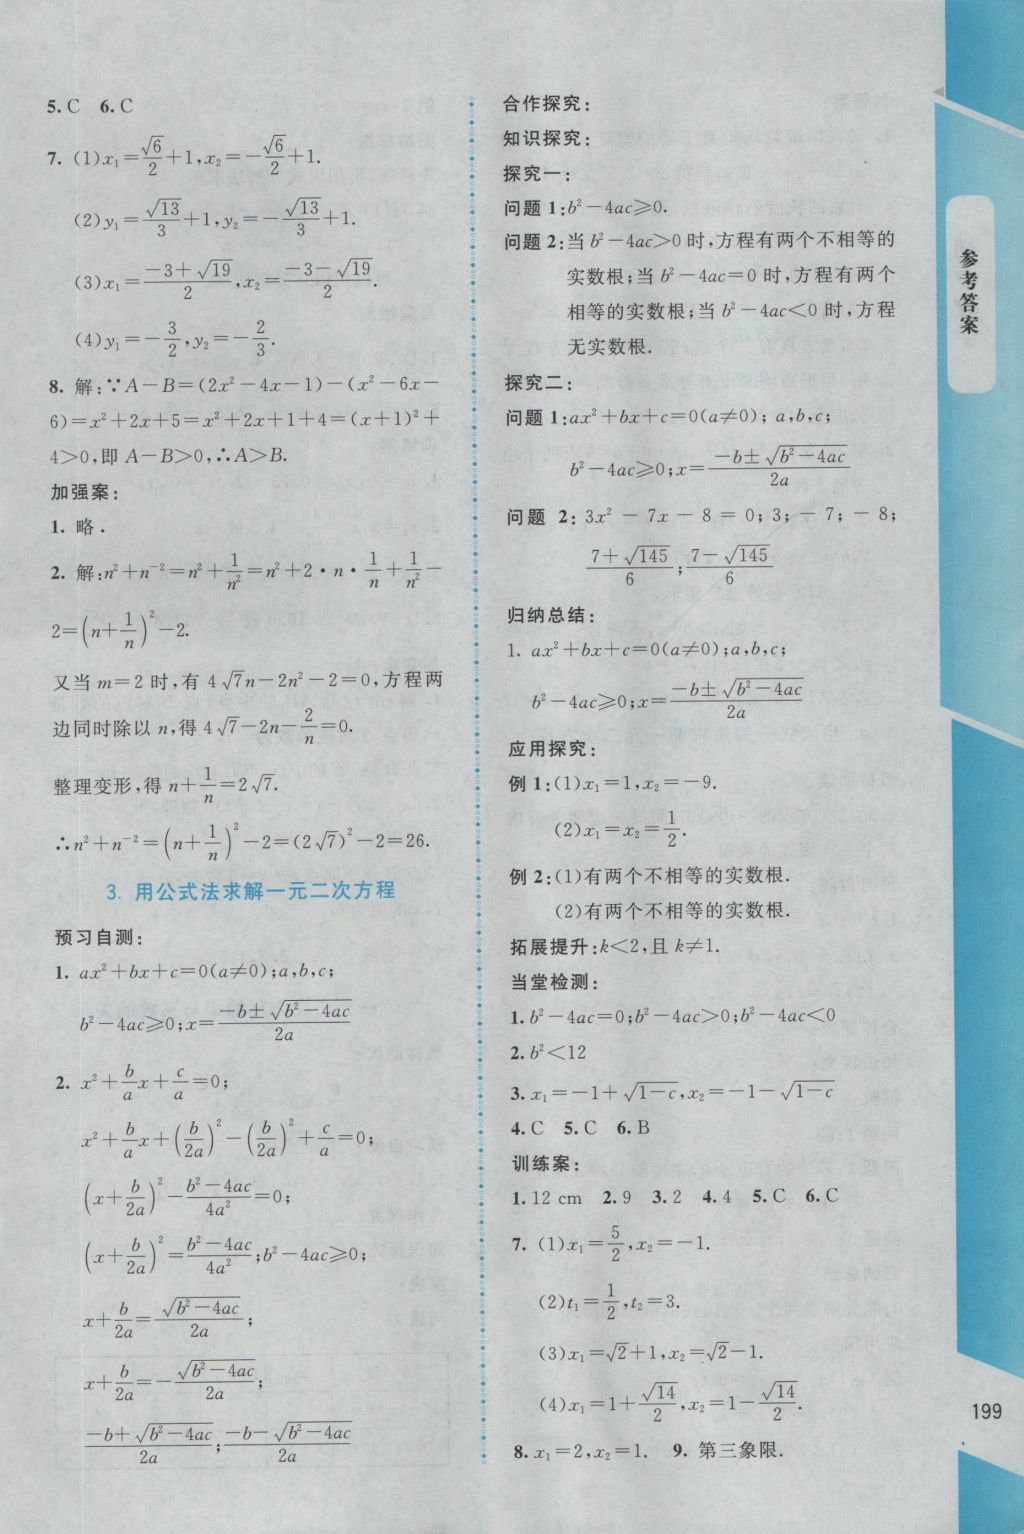 5. C 6. C
7. (1)x₁=√6/2+1,x₂=-√6/2+1.
(2)y₁=√13/3+1,y₂=-√13/3+1.
(3)x₁=(-3+√19)/2,x₂=(-3-√19)/2.
(4)y₁=-3/2,y₂=-2/3.
8. 解:∵A-B=(2x²-4x-1)-(x²-6x-
6)=x²+2x+5=x²+2x+1+4=(x+1)²+
4>0,即 A-B>0,∴A>B.
加强案:
1. 略.
2. 解:n²+n⁻²=n²+1/n²=n²+2·n·1/n+1/n²-
2=(n+1/n)²-2.
又当 m=2 时,有 4√7n-2n²-2=0,方程两
边同时除以 n,得 4√7-2n-2/n=0.
整理变形,得 n+1/n=2√7.
∴n²+n⁻²=(n+1/n)²-2=(2√7)²-2=26.
3. 用公式法求解一元二次方程
预习自测:
1. ax²+bx+c=0(a≠0);a,b,c;
b²-4ac≥0;x=(-b±√(b²-4ac))/2a
2. x²+b/a x+c/a=0;
x²+b/a x+(b/2a)²-(b/2a)²+c/a=0;
(x+b/2a)²-(b²-4ac)/4a²=0;
(x+b/2a)²=(b²-4ac)/4a²;b²-4ac≥0;
x+b/2a=√(b²-4ac)/2a;
x+b/2a=-√(b²-4ac)/2a;
(-b+√(b²-4ac))/2a;(-b-√(b²-4ac))/2a
合作探究:
知识探究:
探究一:
问题 1:b²-4ac≥0.
问题 2:当 b²-4ac>0 时,方程有两个不相等的
实数根;当 b²-4ac=0 时,方程有两个
相等的实数根;当 b²-4ac<0 时,方程
无实数根.
探究二:
问题 1:ax²+bx+c=0(a≠0); a,b,c;
b²-4ac≥0;x=(-b±√(b²-4ac))/2a
问题 2:3x²-7x-8=0;3;-7;-8;
(7+√145)/6;(7-√145)/6
归纳总结:
1. ax²+bx+c=0(a≠0);a,b,c;
b²-4ac≥0;x=(-b±√(b²-4ac))/2a
应用探究:
例 1:(1)x₁=1,x₂=-9.
(2)x₁=x₂=1/2.
例 2:(1)有两个不相等的实数根.
(2)有两个不相等的实数根.
拓展提升:k<2,且 k≠1.
当堂检测:
1. b²-4ac=0;b²-4ac>0;b²-4ac<0
2. b²<12
3. x₁=-1+√(1-c),x₂=-1-√(1-c)
4. C 5. C 6. B
训练案:
1. 12 cm 2. 9 3. 2 4. 4 5. C 6. C
7. (1)x₁=5/2,x₂=-1.
(2)t₁=1/2,t₂=3.
(3)x₁=√2+1,x₂=√2-1.
(4)x₁=1+√14/2,x₂=1-√14/2.
8. x₁=2,x₂=1. 9. 第三象限.
参考答案
199